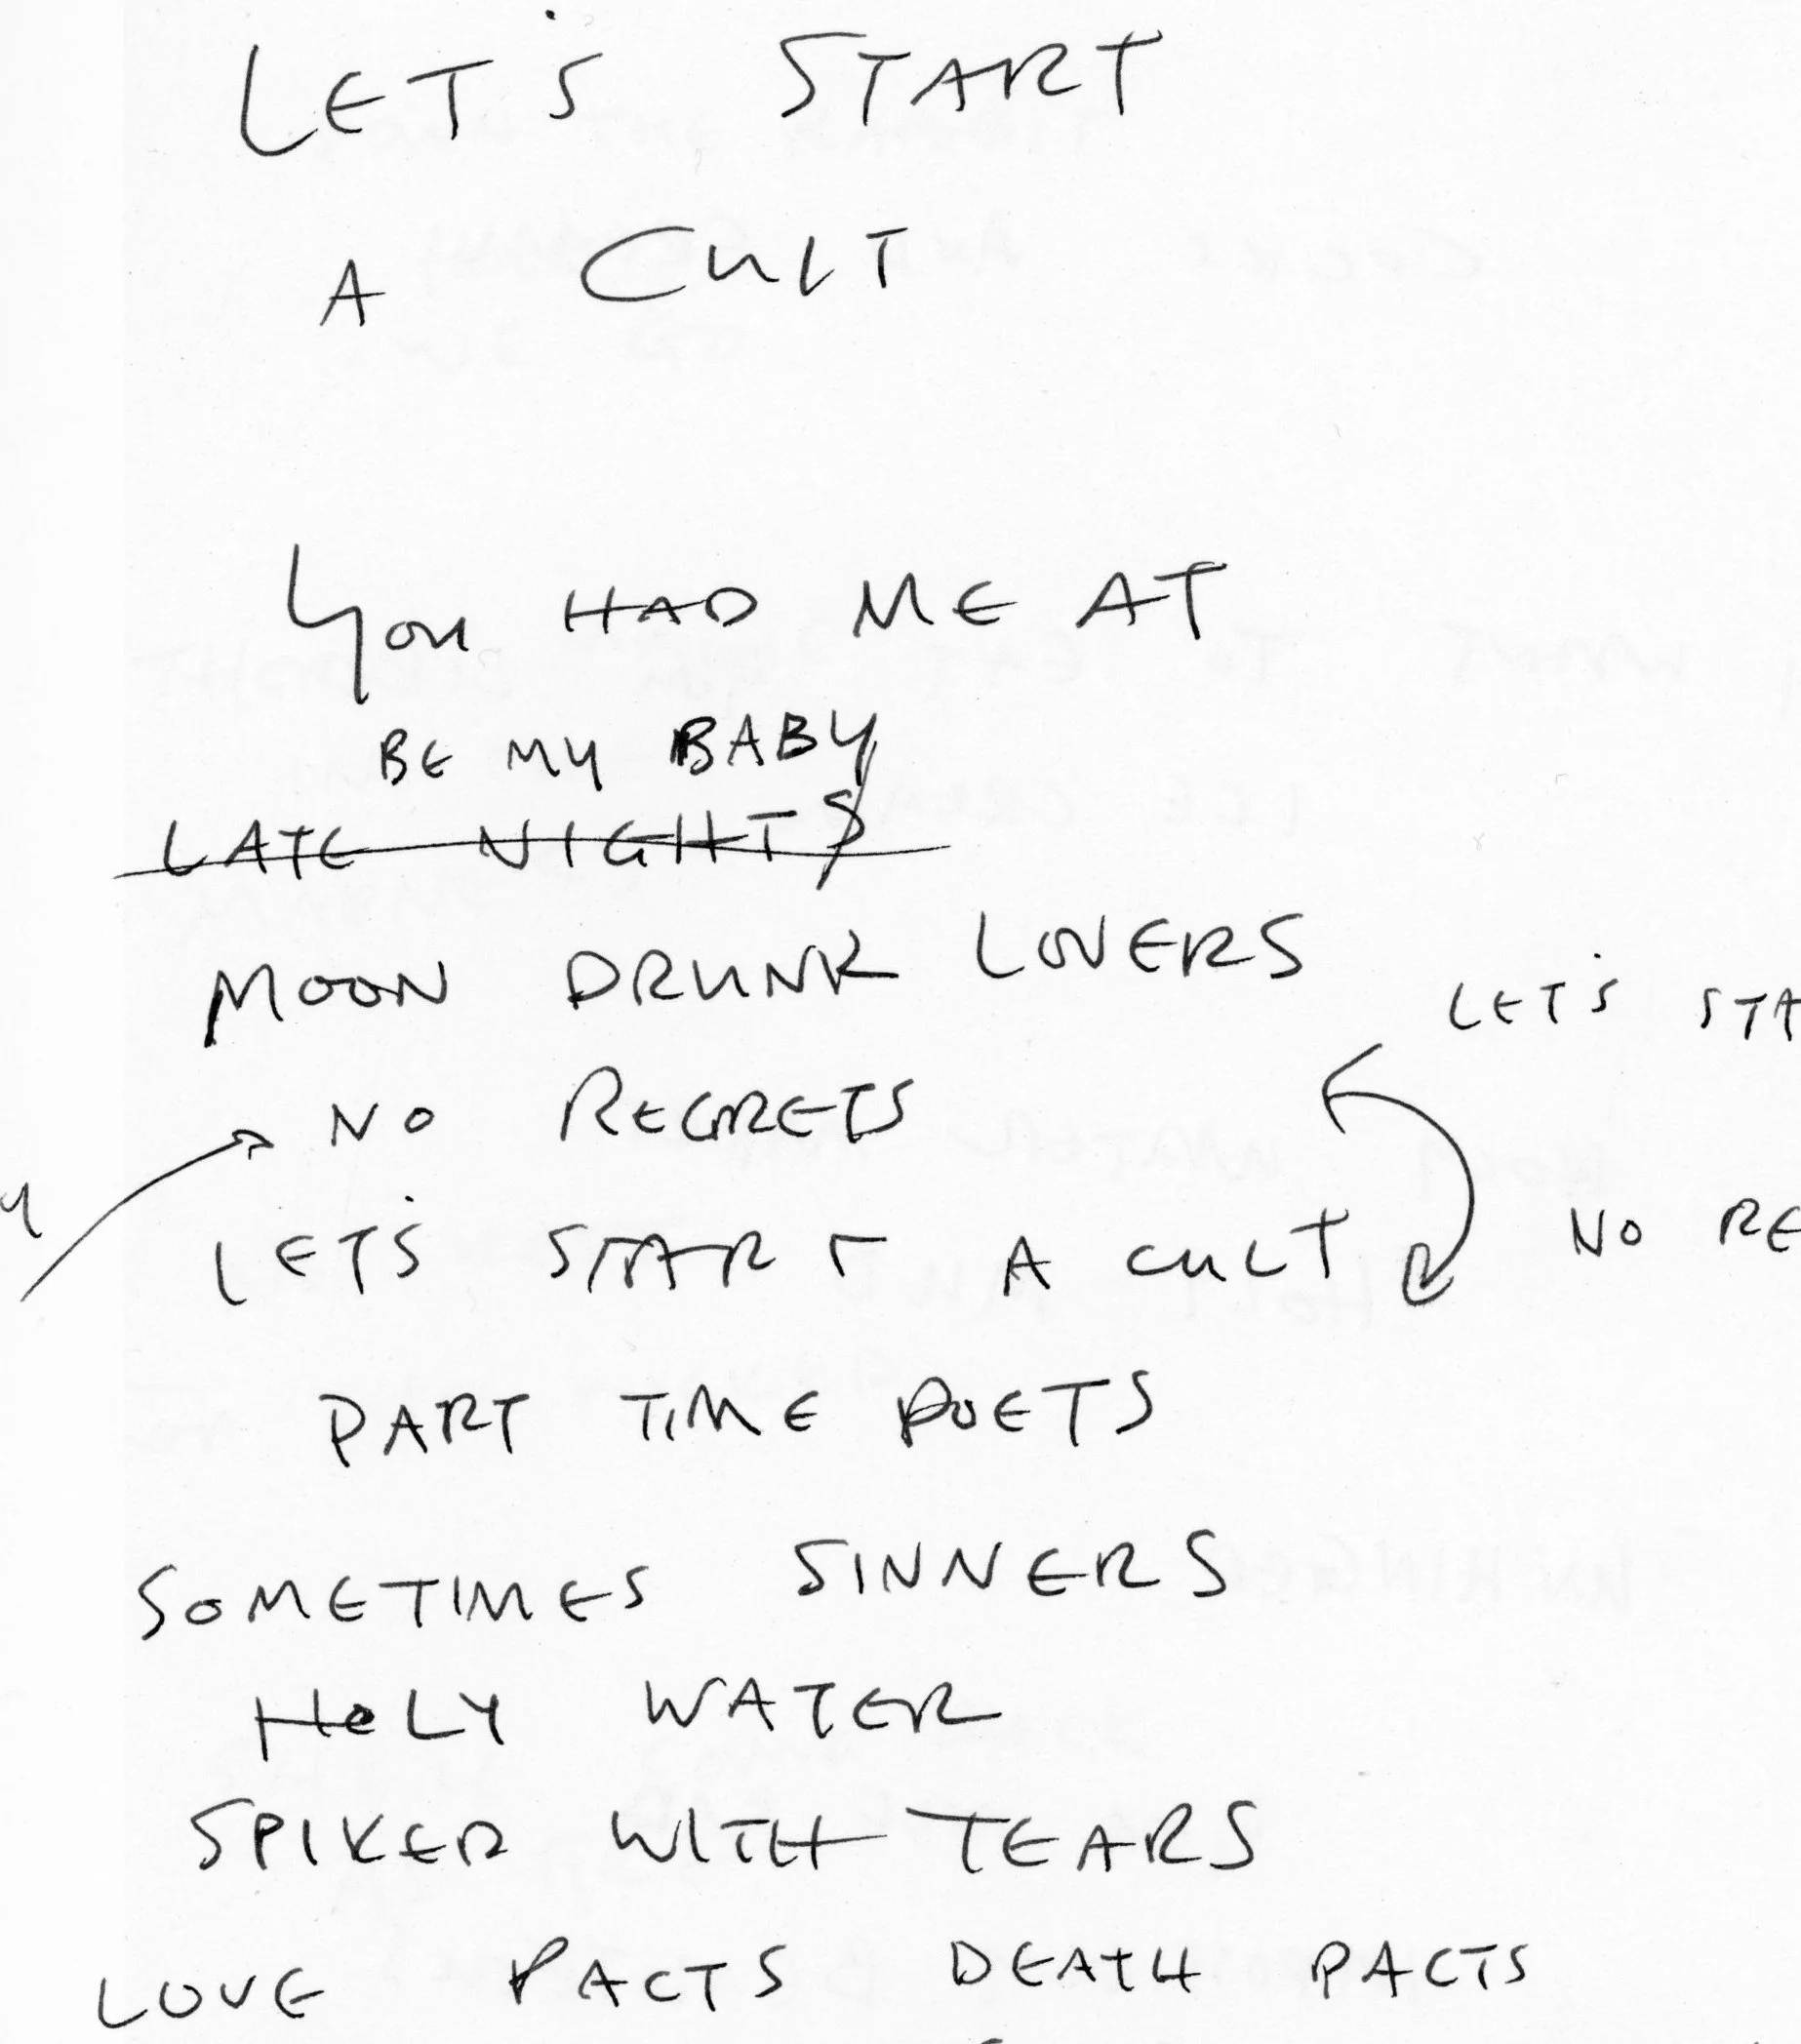 LET'S START
A CULT
YOU HAD ME AT
BE MY BABY
LATE NIGHTS
MOON DRUNK LOVERS
LET'S STA
NO REGRETS
NO RE
LET'S START A CULT
PART TIME POETS
SOMETIMES SINNERS
HOLY WATER
SPIKED WITH TEARS
LOVE PACTS DEATH PACTS